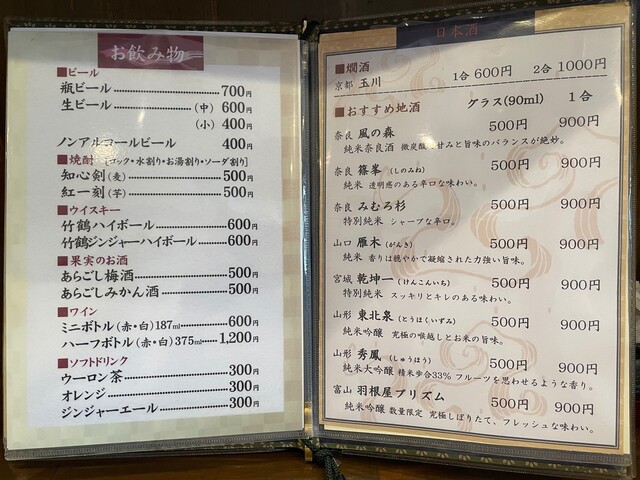 お飲み物
■ビール
瓶ビール 700円
生ビール (中) 600円
(小) 400円
ノンアルコールビール 400円
■焼酎 [ロック・水割り・お湯割り・ソーダ割り]
知心剣(麦) 500円
紅一刻(芋) 500円
■ウイスキー
竹鶴ハイボール 600円
竹鶴ジンジャーハイボール 600円
■果実のお酒
あらごし梅酒 500円
あらごしみかん酒 500円
■ワイン
ミニボトル(赤・白)187ml 600円
ハーフボトル(赤・白)375ml 1,200円
■ソフトドリンク
ウーロン茶 300円
オレンジ 300円
ジンジャーエール 300円
日本酒
■燗酒
京都 玉川 1合 600円 2合 1000円
■おすすめ地酒 グラス(90ml) 1合
奈良 風の森 500円 900円
純米奈良酒 微炭酸 甘みと旨味のバランスが絶妙。
奈良 篠峯(しのみね) 500円 900円
純米 透明感のある辛口な味わい。
奈良 みむろ杉 500円 900円
特別純米 シャープな辛口。
山口 雁木(がんぎ) 500円 900円
純米 香りは穏やかで凝縮された力強い旨味。
宮城 乾坤一(けんこんいち) 500円 900円
特別純米 スッキリとキレのある味わい。
山形 東北泉(とうほくいずみ) 500円 900円
純米吟醸 究極の喉越しとお米の旨味。
山形 秀鳳(しゅうほう) 500円 900円
純米大吟醸 精米歩合33% フルーツを思わせるような香り。
富山 羽根屋プリズム 500円 900円
純米吟醸 数量限定 究極しぼりたて、フレッシュな味わい。